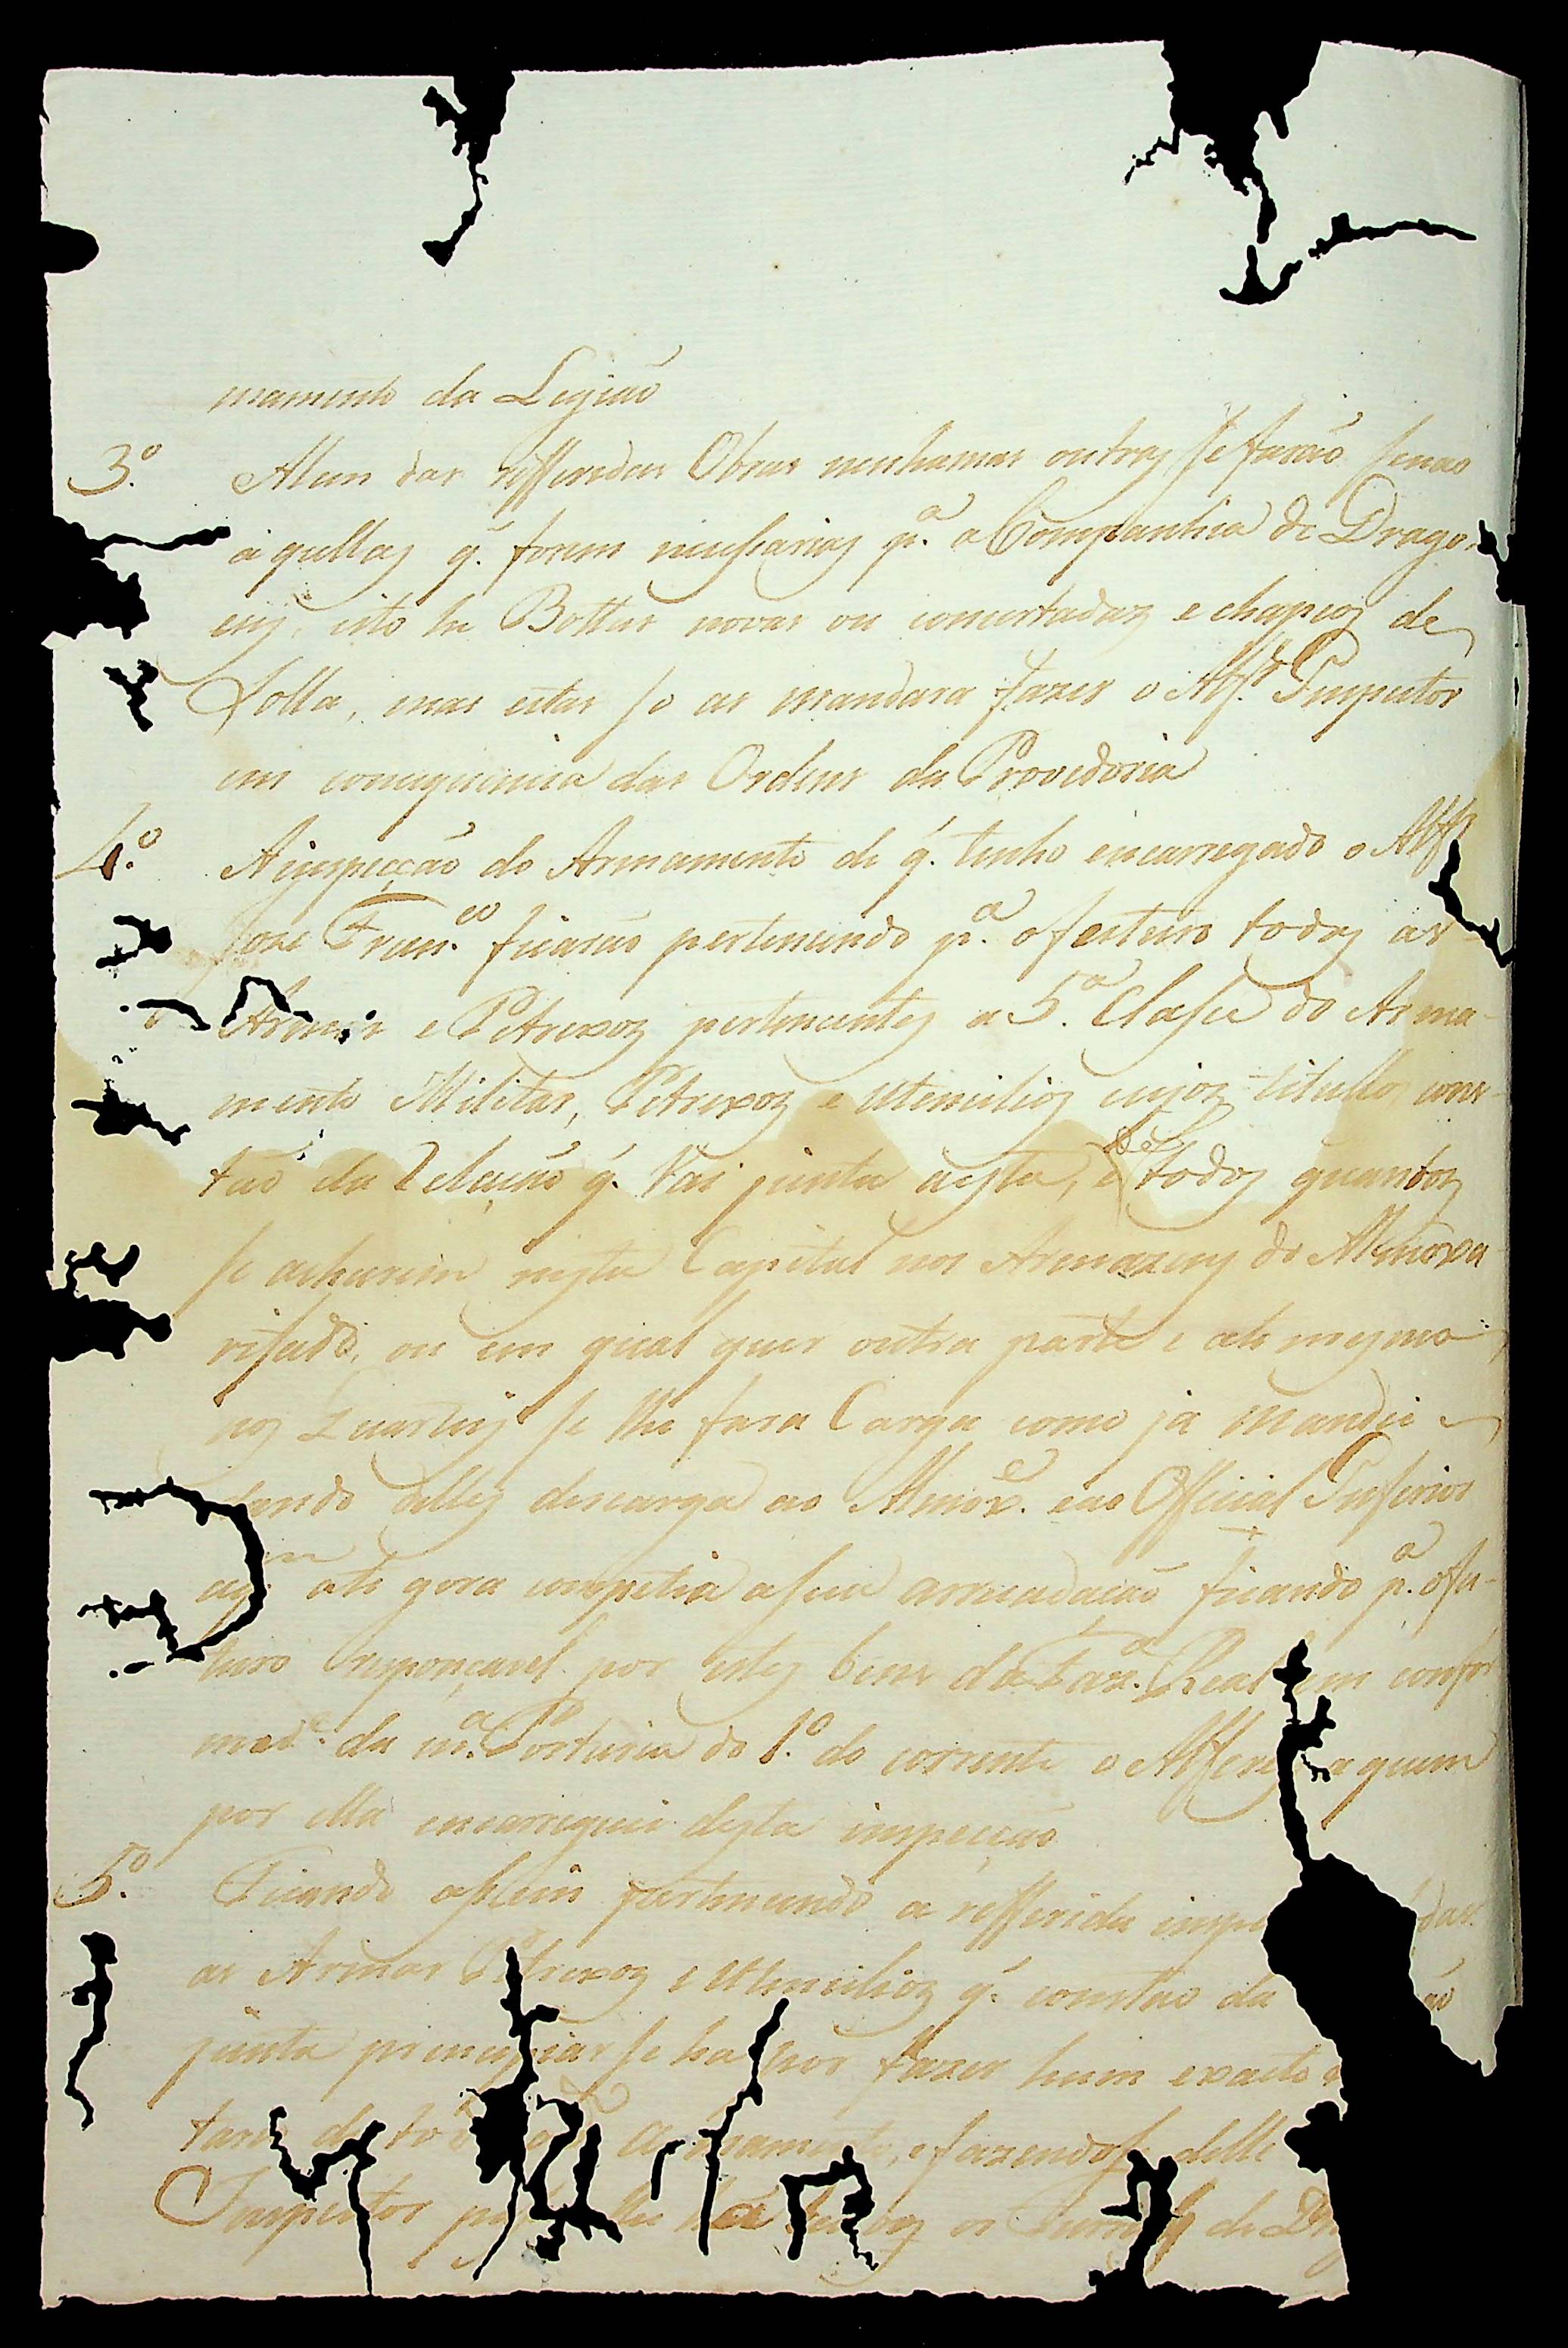 mamento da Legiaõ
3.º Alem das refferidas Obras nenhumas outras se faraõ senaõ
aquellas q̃. forem necessarias p.ª a Companhia de Drago-
ens, isto he Bottas novas ou concertadas e chapeos de
Solla, mas estas so as mandara fazer o Alf.s Inspector
em concequencia das Ordens da Provedoria
4.º A inspecçaõ do Armamento de q̃. tenho encarregado o Alf.
Joze Fran.co ficaraõ pertencendo p.ª o futuro todas as
Armas e Petrexos pertencentes a 5.ª Classe do Arma-
mento Militar, Petrexos e utencilios cujos titullos cons-
taõ da Relaçaõ q̃. Vai junta a esta, e de todos quantos
se acharem nesta Capital nos Armazens do Almoxa-
rifado, ou em qual quer outra parte e ate mesmo
nos Quarteis se lhe fara Carga como já mandei e
dando delles descarga ao Almox.e e ao Official Inferior
aq.m ate gora competia a sua arrecadaçaõ ficando p.ª o fu-
turo responçavel por estes bens da Faz.ª Real em confor
mid.e da m.ª Portaria do 1.º do corrente o Alferes a quem
por ella encarreguei desta inspecçaõ
5.º Ficando assim pertencendo a refferida inspe das
as Armas Petrexos e utencilios q̃. constaõ da
junta principiar se ha por fazer hum exacto
Armamento, e fazendose delle
Inspector os de